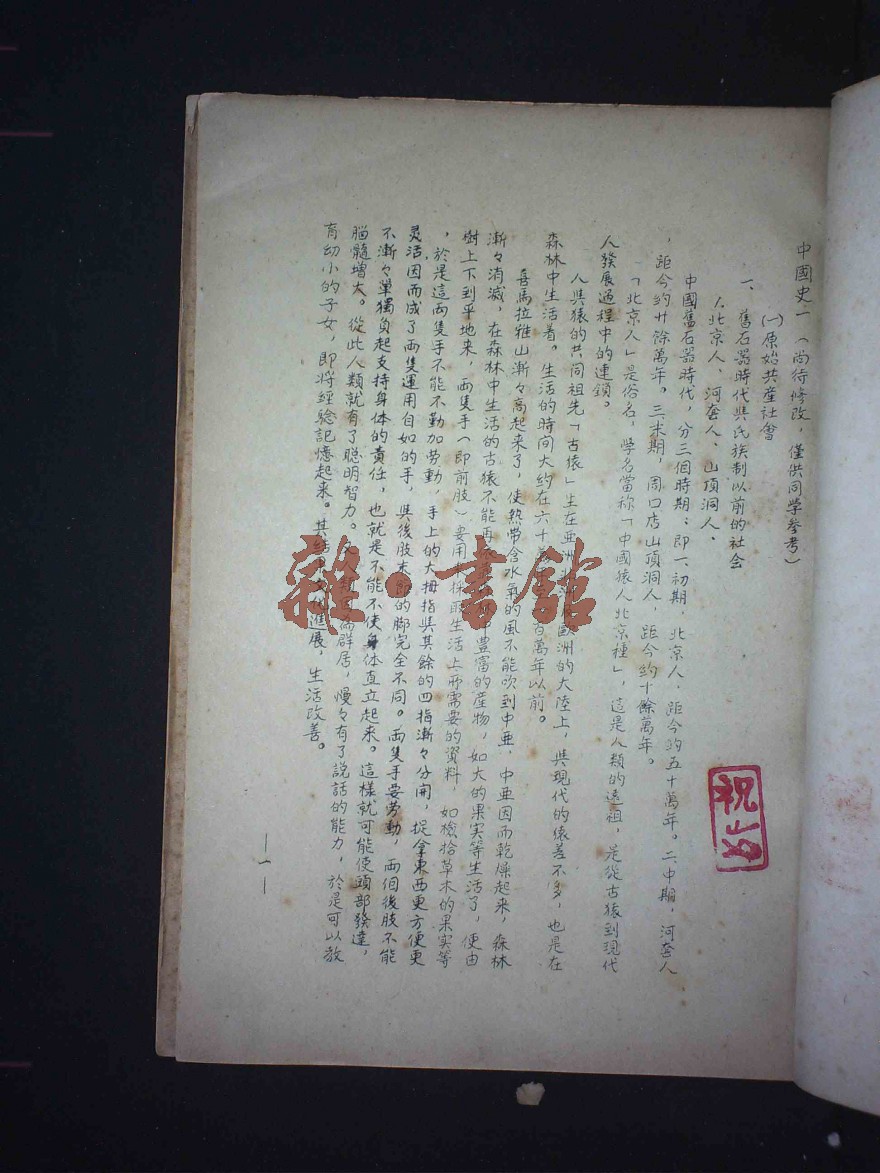 中國史一（尚待修改，僅供同學參考）
(一)原始共產社會
一、舊石器時代與氏族制以前的社會
人北京人、河套人、山頂洞人、
中國舊石器時代，分三個時期；即一初期，北京人．距今約五十萬年。二、中期，河套人
，距今約廿餘萬年。三末期，周口店山頂洞人，距今約十餘萬年。
「北京人」是俗名，學名當称「中國猿人北京種」，這是人類的遠祖，是從古猿到現代
人發展過程中的連鎖。
人與猿的共同祖先「古猿」生在亜洲 歐洲的大陸上，與現代的猿差不多，也是在
森林中生活着。生活的時间大約在六十 百萬年以前。
喜馬拉雅山漸々高起來了，使熱帶含水氣的風不能吹到中亜，中亜因而乾燥起来，森林
漸々消減，在森林中生活的古猿不能再 豐富的產物，如大的果实等生活了，便由
樹上下到平地来，兩隻手（即前肢）要用 採取生活上所需要的資料，如檢拾草木的果实等
，於是這兩隻手不能不勤加劳動，手上的大拇指與其餘的四指漸々分開，捉拿東西更方便更
灵活因而成了兩隻運用自如的手，與後肢末節的脚完全不同。兩隻手要劳動，兩個後肢不能
不漸々單獨負起支持身体的責任，也就是不能不使身体直立起來。這樣就可能使頭部發達，
腦髓增大。從此人類就有了聪明智力。 群居，慢々有了說話的能力，於是可以教
育幼小的子女，即將經驗記憶起来。其結 進展，生活改善。
—一—
雜·書館
祝